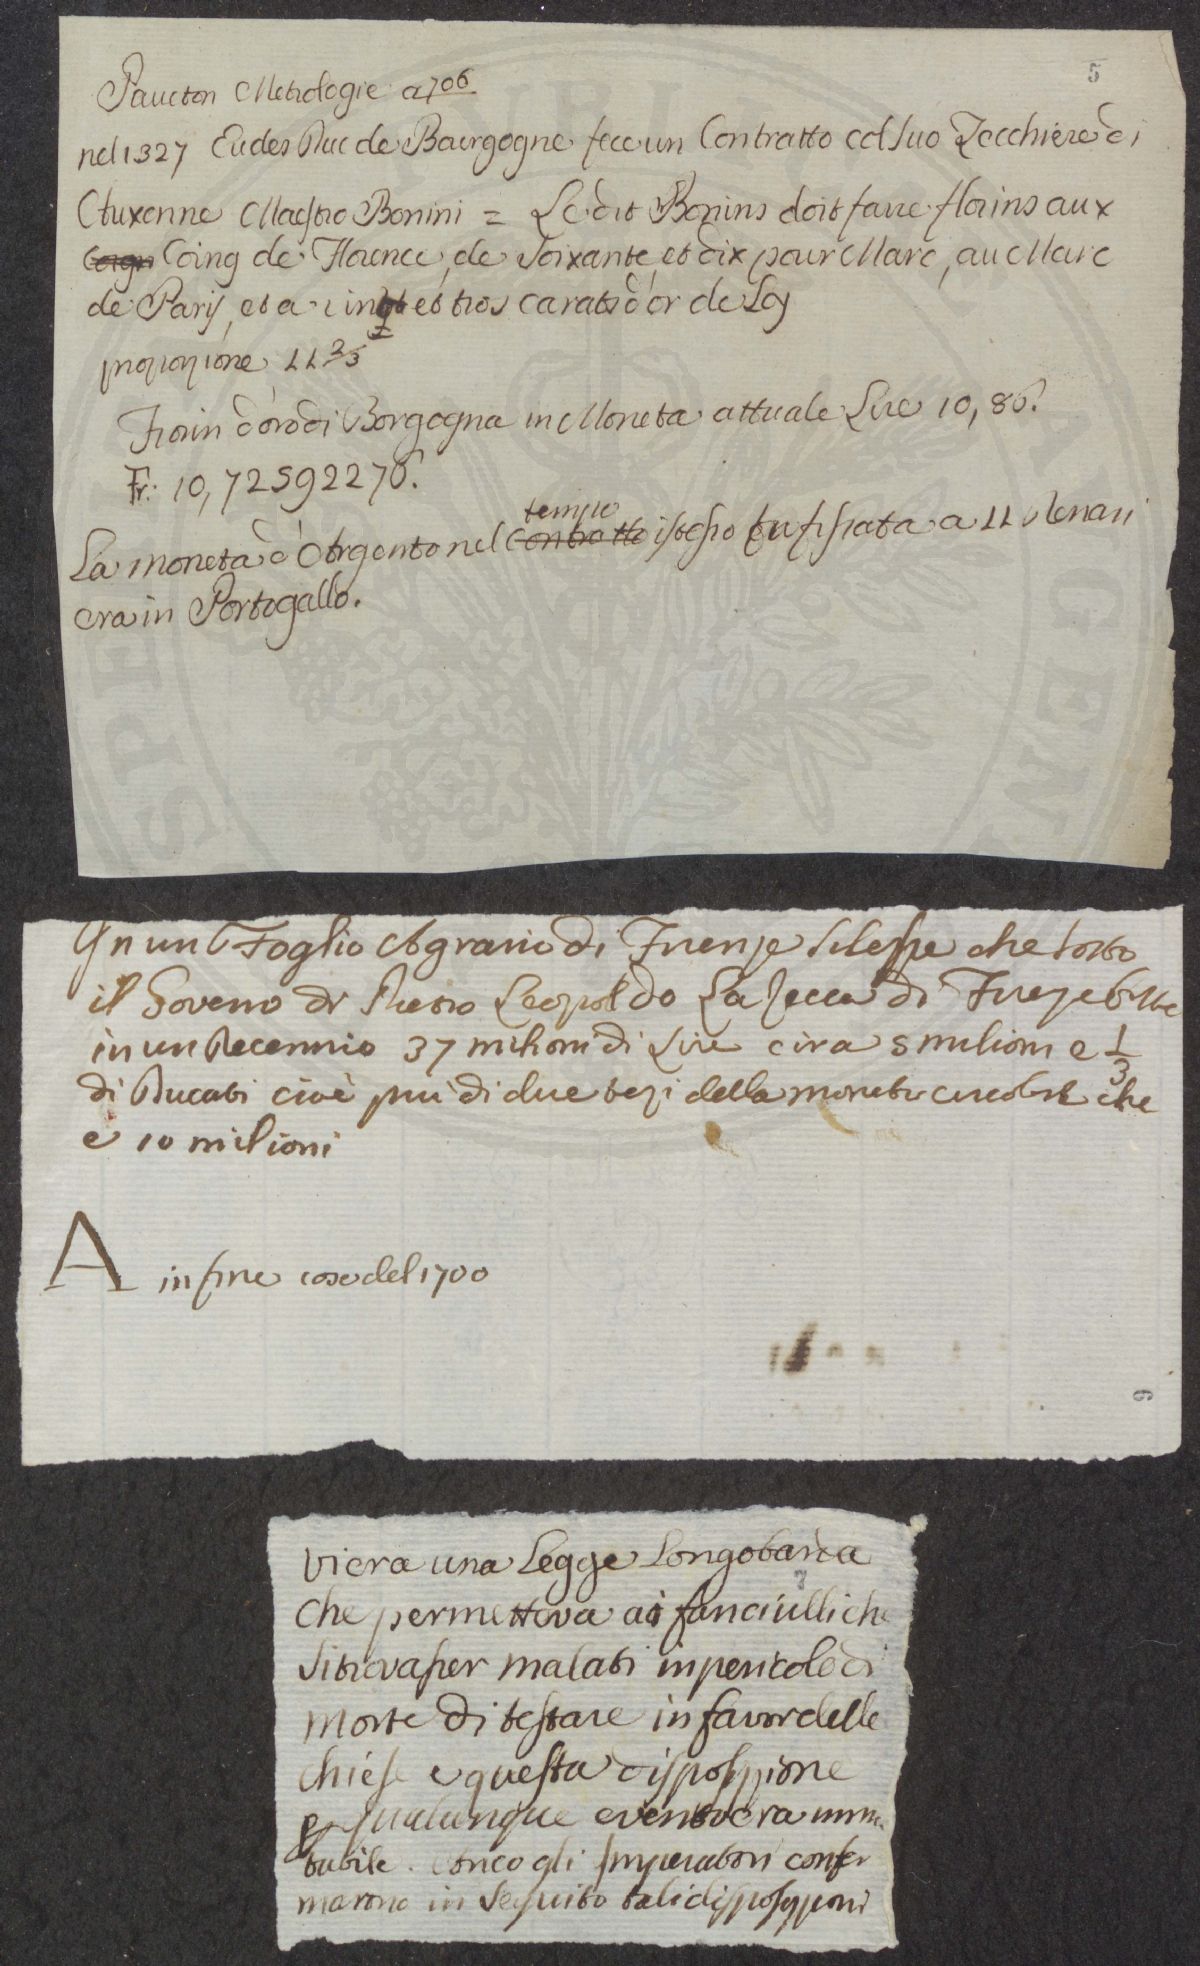 5
Paucton Metrologie a 706
nel 1327 Eudes Duc de Bourgogne fece un Contratto col suo Zecchiere di
Auxonne Maestro Bonini = Le dit Bonins doit faire florins aux
Coing de Florence, de Soixante et dix pour Marc, au Marc
de Paris, et a vingt et trois carats d'or de Loy
proporzione 11 2/3
Fiorin d'oro di Borgogna in Moneta attuale Lire 10,86.
Fr: 10,72592276.
tempo
La moneta d'Argento nel contratto istesso fu fissata a 11 Denari
era in Portogallo.
In un Foglio Agrario di Firenze si lesse che sotto
il Governo di Pietro Leopoldo La Zecca di Firenze battè
in un Decennio 37 milioni di Lire circa 5 milioni e 1/3
di Ducati cioè piu di due terzi della moneta circolante che
è 10 milioni
A in fine cose del 1700
6
Vi era una Legge Longobarda
7
che permetteva ai fanciulli che
si trovasser malati in pericolo di
morte di testare in favor delle
chiese e questa disposizione
p qualunque evento era immu
tabile. Anco gli Imperatori confer
marono in seguito tali disposizioni